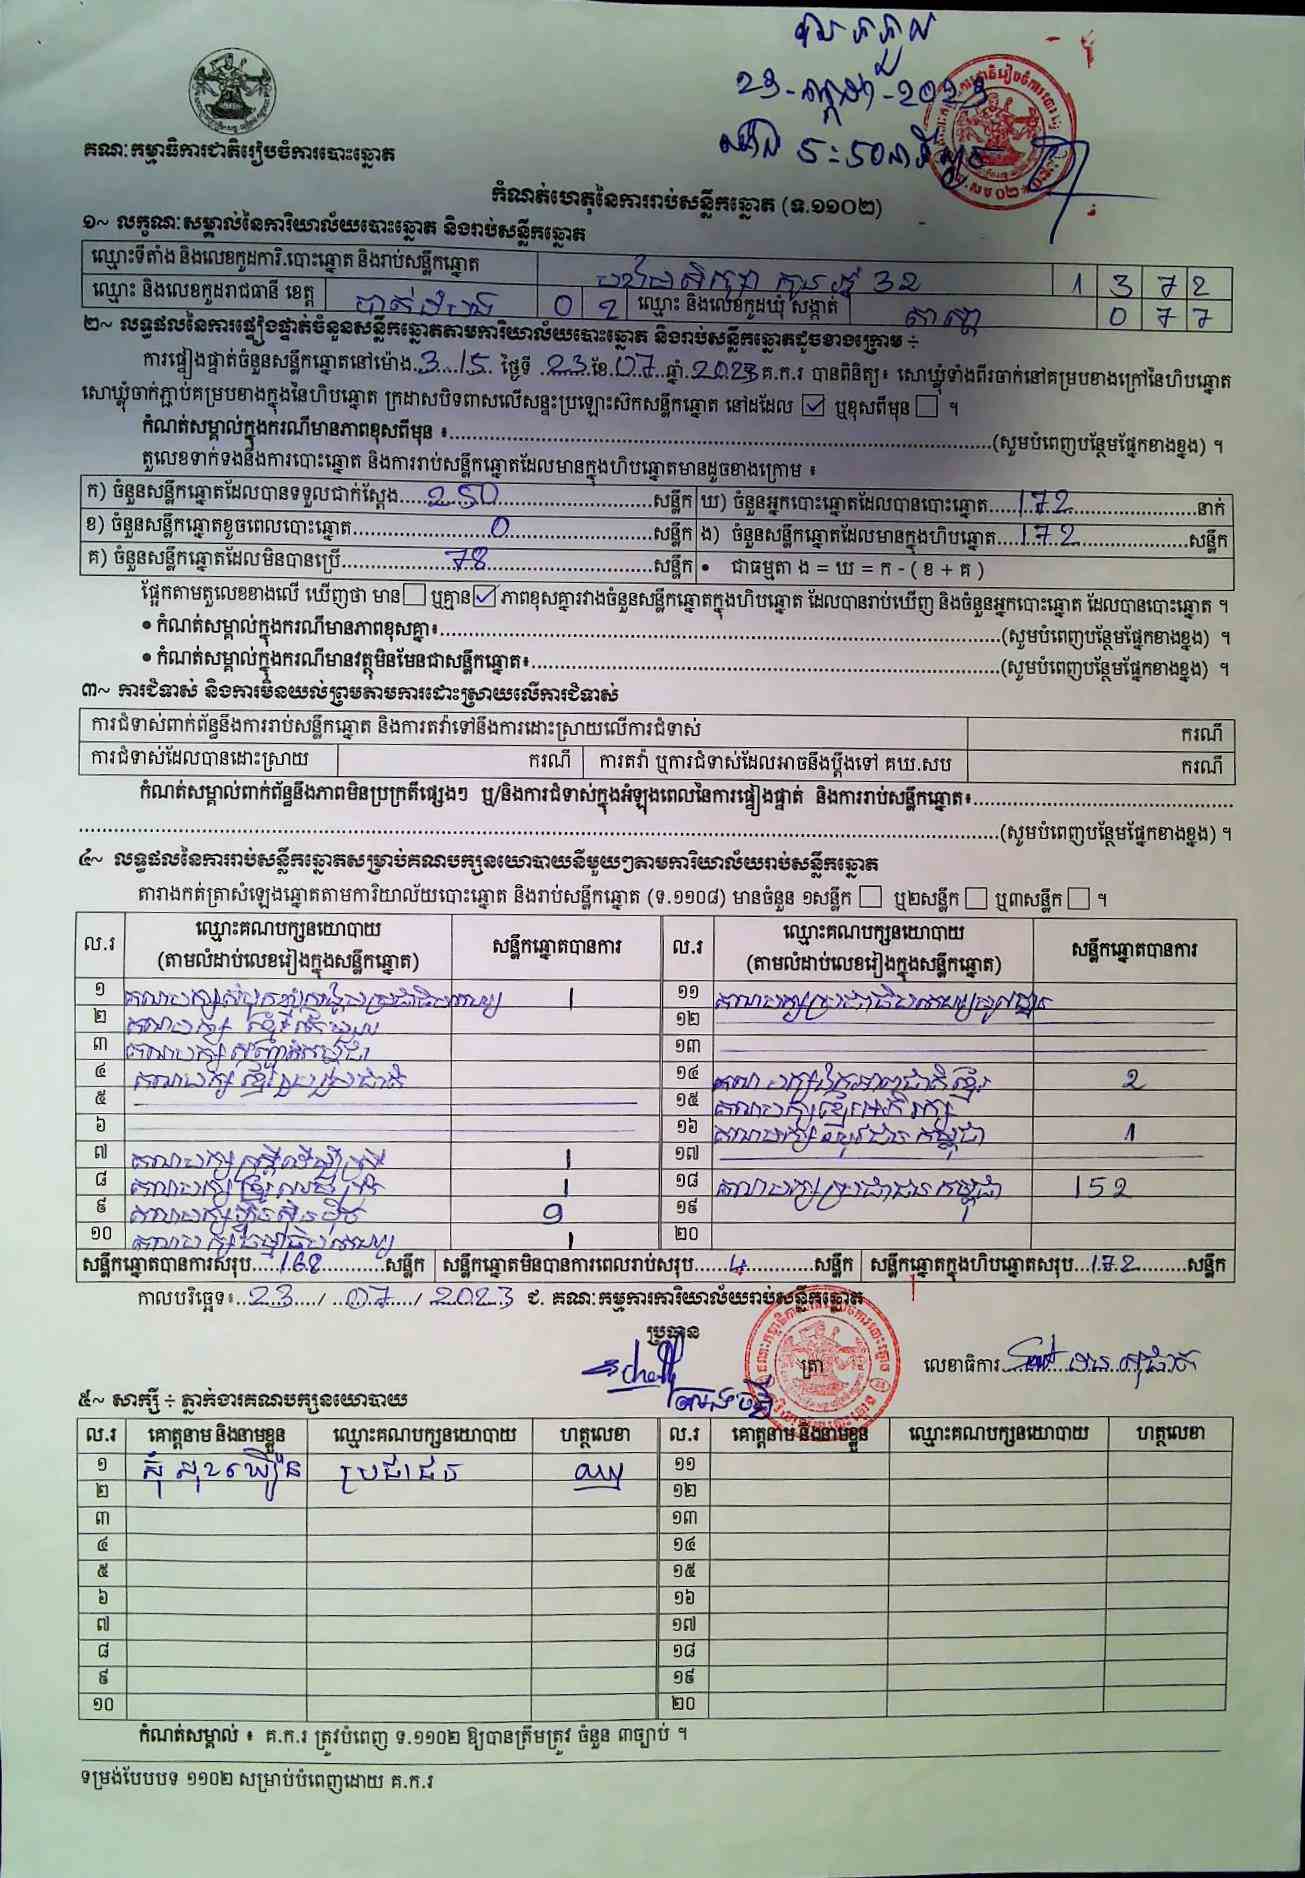 23-កក្កដា-2023
គណៈកម្មាធិការជាតិរៀបចំការបោះឆ្នោត
កំណត់ហេតុនៃការរាប់សន្លឹកឆ្នោត (ទ.១១០២)
១~ លក្ខណៈសម្គាល់នៃការិយាល័យបោះឆ្នោត និងរាប់សន្លឹកឆ្នោត
ឈ្មោះទីតាំង និងលេខកូដការិ.បោះឆ្នោត និងរាប់សន្លឹកឆ្នោត 1 3 7 2
ឈ្មោះ និងលេខកូដរាជធានី ខេត្ត បាត់ដំបង 0 2 ឈ្មោះ និងលេខកូដឃុំ សង្កាត់ 0 7 7
២~ លទ្ធផលនៃការផ្ទៀងផ្ទាត់ចំនួនសន្លឹកឆ្នោតតាមការិយាល័យបោះឆ្នោត និងរាប់សន្លឹកឆ្នោតដូចខាងក្រោម ÷
ការផ្ទៀងផ្ទាត់ចំនួនសន្លឹកឆ្នោតនៅម៉ោង 3:15 ថ្ងៃទី 23 ខែ 07 ឆ្នាំ 2023 គ.ក.រ បានពិនិត្យ៖ សោឃ្លុំទាំងពីរចាក់នៅគម្របខាងក្រៅនៃហិបឆ្នោត
សោឃ្លុំចាក់ភ្ជាប់គម្របខាងក្នុងនៃហិបឆ្នោត ក្រដាសបិទពាសលើសន្ទះប្រឡោះស៊កសន្លឹកឆ្នោត នៅដដែល ☑ ឬខុសពីមុន ☐ ។
កំណត់សម្គាល់ក្នុងករណីមានភាពខុសពីមុន ៖ (សូមបំពេញបន្ថែមផ្នែកខាងខ្នង) ។
តួលេខទាក់ទងនឹងការបោះឆ្នោត និងការរាប់សន្លឹកឆ្នោតដែលមានក្នុងហិបឆ្នោតមានដូចខាងក្រោម ៖
ក) ចំនួនសន្លឹកឆ្នោតដែលបានទទួលជាក់ស្តែង 250 សន្លឹក ឃ) ចំនួនអ្នកបោះឆ្នោតដែលបានបោះឆ្នោត 172 នាក់
ខ) ចំនួនសន្លឹកឆ្នោតខូចពេលបោះឆ្នោត 0 សន្លឹក ង) ចំនួនសន្លឹកឆ្នោតដែលមានក្នុងហិបឆ្នោត 172 សន្លឹក
គ) ចំនួនសន្លឹកឆ្នោតដែលមិនបានប្រើ 78 សន្លឹក • ជាធម្មតា ង = ឃ = ក - ( ខ + គ )
ផ្អែកតាមតួលេខខាងលើ ឃើញថា មាន ☐ ឬគ្មាន ☑ ភាពខុសគ្នារវាងចំនួនសន្លឹកឆ្នោតក្នុងហិបឆ្នោត ដែលបានរាប់ឃើញ និងចំនួនអ្នកបោះឆ្នោត ដែលបានបោះឆ្នោត ។
• កំណត់សម្គាល់ក្នុងករណីមានភាពខុសគ្នា៖ (សូមបំពេញបន្ថែមផ្នែកខាងខ្នង) ។
• កំណត់សម្គាល់ក្នុងករណីមានវត្ថុមិនមែនជាសន្លឹកឆ្នោត៖ (សូមបំពេញបន្ថែមផ្នែកខាងខ្នង) ។
៣~ ការជំទាស់ និងការមិនយល់ព្រមតាមការដោះស្រាយលើការជំទាស់
ការជំទាស់ពាក់ព័ន្ធនឹងការរាប់សន្លឹកឆ្នោត និងការតវ៉ាទៅនឹងការដោះស្រាយលើការជំទាស់ ករណី
ការជំទាស់ដែលបានដោះស្រាយ ករណី ការតវ៉ា ឬការជំទាស់ដែលអាចនឹងប្តឹងទៅ គឃ.សប ករណី
កំណត់សម្គាល់ពាក់ព័ន្ធនឹងភាពមិនប្រក្រតីផ្សេងៗ ឬ/និងការជំទាស់ក្នុងអំឡុងពេលនៃការផ្ទៀងផ្ទាត់ និងការរាប់សន្លឹកឆ្នោត៖
(សូមបំពេញបន្ថែមផ្នែកខាងខ្នង) ។
៤~ លទ្ធផលនៃការរាប់សន្លឹកឆ្នោតសម្រាប់គណបក្សនយោបាយនីមួយៗតាមការិយាល័យរាប់សន្លឹកឆ្នោត
តារាងកត់ត្រាសំឡេងឆ្នោតតាមការិយាល័យបោះឆ្នោត និងរាប់សន្លឹកឆ្នោត (ទ.១១០៨) មានចំនួន ១សន្លឹក ☐ ឬ២សន្លឹក ☐ ឬ៣សន្លឹក ☐ ។
ល.រ ឈ្មោះគណបក្សនយោបាយ (តាមលំដាប់លេខរៀងក្នុងសន្លឹកឆ្នោត) សន្លឹកឆ្នោតបានការ ល.រ ឈ្មោះគណបក្សនយោបាយ (តាមលំដាប់លេខរៀងក្នុងសន្លឹកឆ្នោត) សន្លឹកឆ្នោតបានការ
១ គណបក្សសំបុកឃ្មុំសង្គមប្រជាធិបតេយ្យ 1 ១១ គណបក្សប្រជាធិបតេយ្យមូលដ្ឋាន
២ គណបក្ស ខ្មែរ ១២
៣ គណបក្ស កម្ពុជា ១៣
៤ គណបក្ស ខ្មែររួបរួមជាតិ ១៤ គណបក្ស ជាតិខ្មែរ 2
៥ ១៥ គណបក្ស ខ្មែរ
៦ ១៦ គណបក្ស យុវជន កម្ពុជា 1
៧ គណបក្ស ស្ត្រីដើម្បីស្ត្រី 1 ១៧
៨ គណបក្ស ខ្មែរ 1 ១៨ គណបក្ស ប្រជាជន កម្ពុជា 152
៩ គណបក្សហ៊្វុនស៊ិនប៉ិច 9 ១៩
១០ គណបក្សធម្មាធិបតេយ្យ 1 ២០
សន្លឹកឆ្នោតបានការសរុប 168 សន្លឹក សន្លឹកឆ្នោតមិនបានការពេលរាប់សរុប 4 សន្លឹក សន្លឹកឆ្នោតក្នុងហិបឆ្នោតសរុប 172 សន្លឹក
កាលបរិច្ឆេទ៖ 23 / 07 / 2023 ជ. គណៈកម្មការការិយាល័យរាប់សន្លឹកឆ្នោត
ប្រធាន
ត្រា លេខាធិការ
៥~ សាក្សី ÷ ភ្នាក់ងារគណបក្សនយោបាយ
ល.រ គោត្តនាម និងនាមខ្លួន ឈ្មោះគណបក្សនយោបាយ ហត្ថលេខា ល.រ គោត្តនាម និងនាមខ្លួន ឈ្មោះគណបក្សនយោបាយ ហត្ថលេខា
១ ប្រជាជន ១១
២ ១២
៣ ១៣
៤ ១៤
៥ ១៥
៦ ១៦
៧ ១៧
៨ ១៨
៩ ១៩
១០ ២០
កំណត់សម្គាល់ ៖ គ.ក.រ ត្រូវបំពេញ ទ.១១០២ ឱ្យបានត្រឹមត្រូវ ចំនួន ៣ច្បាប់ ។
ទម្រង់បែបបទ ១១០២ សម្រាប់បំពេញដោយ គ.ក.រ